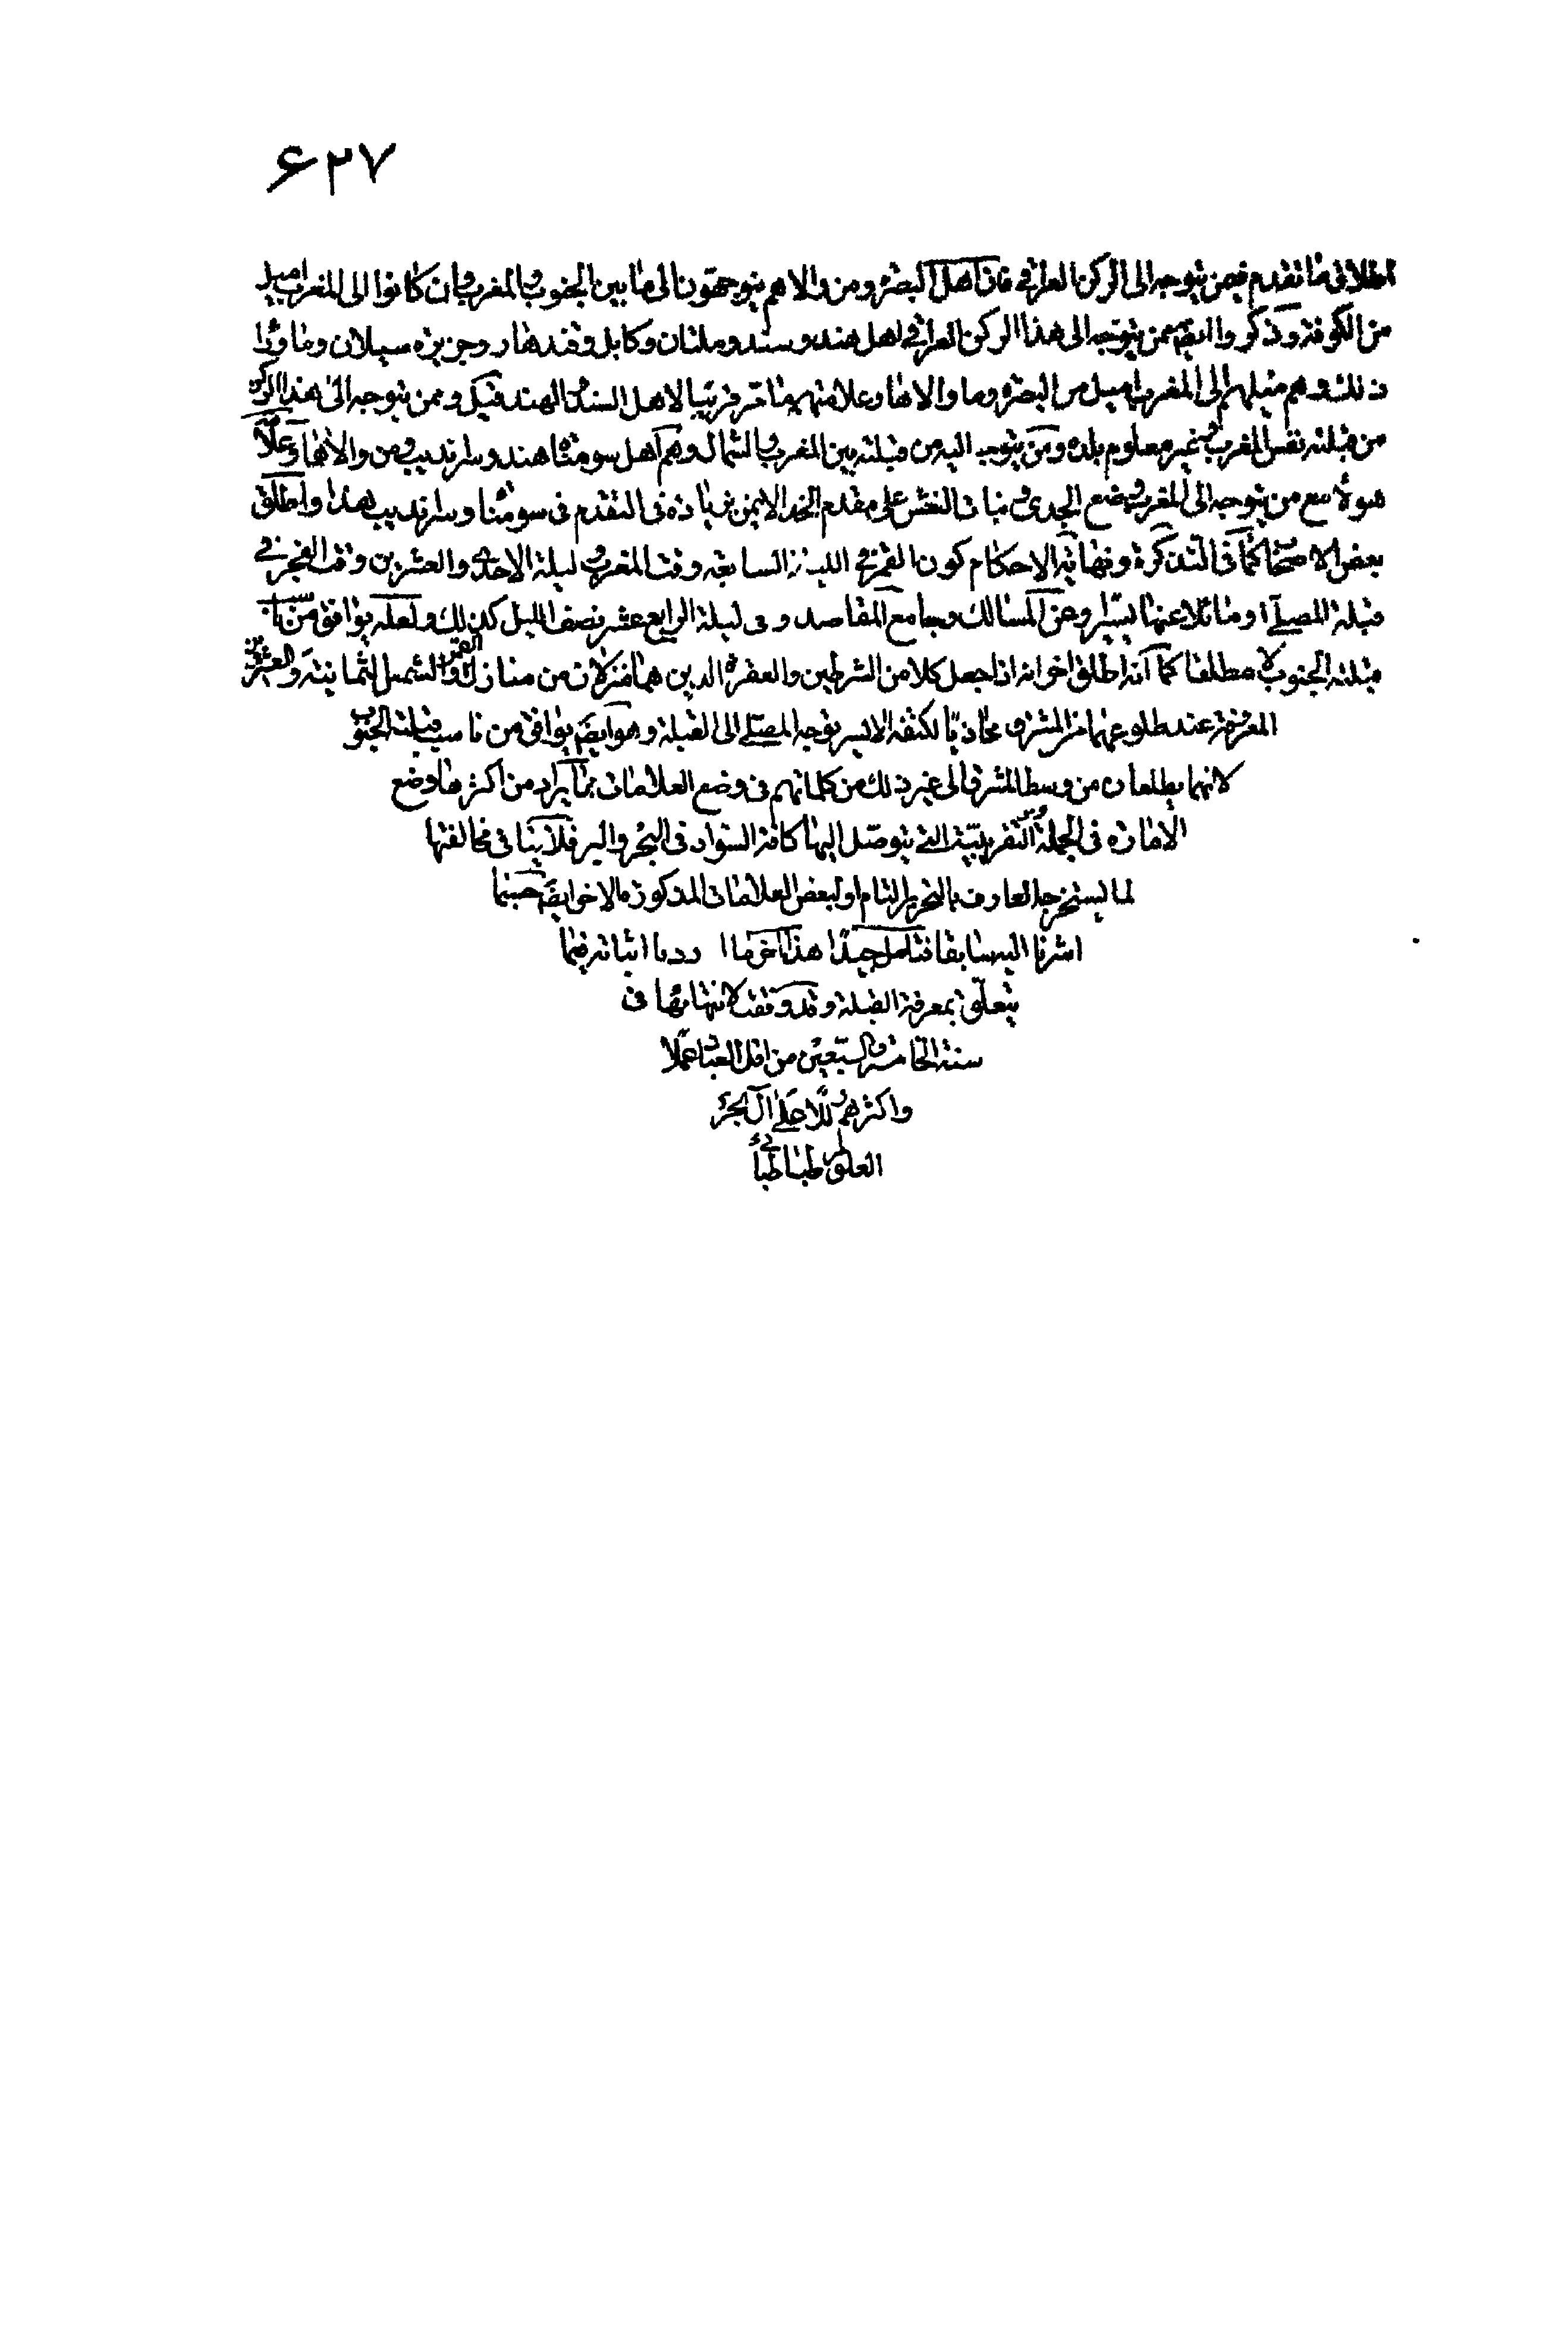 ۶۲۷
اطلاق ما تقدم فيمن يتوجه الى الركن العراقى فان اهل البصره ومن والاهم يتوجهون الى ما بين الجنوب والمغرب وان كانوا الى المغرب اميل
من الكوفة وذكروا ايضا ممن يتوجه الى هذا الركن العراقى اهل هند وسند وملتان وكابل وقندهار وجزيره سيلان وما وراء
ذلك وهم قبلتهم الى المغرب اميل من البصره وما والاها وعلامتهم ما مر قريبا لاهل السند والهند قيل وممن يتوجه الى هذا الركن
من قبلته نفس المغرب غير معلوم بلده ومن يتوجه اليه من قبلته بين المغرب والشمال وهم اهل سومنا هند وسرانديب ومن والاها وعلامة
هولاء مع من يتوجه الى المغرب وضع الجدى وبنات النعش على مقدم الخد الايمن بزيادة فى التقدم فى سومنا وسرانديب هذا واطلق
بعض الاصحاب كما فى التذكرة ونهاية الاحكام كون القمر فى الليلة السابعه وقت المغرب وليلة الاحدى والعشرين وقت الفجر فى
قبلة المصلى او مائلا عنها يسيرا وعن المسالك وجامع المقاصد وفى ليلة الرابع عشر نصف الليل كذلك ولعله يوافق من
قبلته الجنوب لا مطلقا كما انه اطلق اخوانه اذا جعل كلا من الشرطين والعفرة الذين هما منزلان من منازل القمر والشمس الثمانية والعشرين
المعروفة عند طلوعهما من المشرق محاذيا لكتفه الايسر توجه المصلى الى القبلة وهو ايضا يوافق من ناسب قبلته الجنوب
لانهما يطلعان من وسط المشرق الى غير ذلك من كلماتهم فى وضع العلامات مما يراد من اكثرها وضع
الاماره فى الجملة التقريبية التى يتوصل اليها كافة السواد فى البحر والبر فلا ينافى مخالفتها
لما يستخرجه العارف بالتحرير التام او لبعض العلامات المذكورة الاخر ايضا حسبما
اشرنا اليه سابقا فتامل جيدا هذا اخر ما اردنا اثباته فيما
يتعلق بمعرفة القبلة وقد وقفت لانتهائها فى
سنة الخامسة والسبعين من اقل العباد عملا
واكثرهم زللا على آل بحر
العلوم طباطبائى